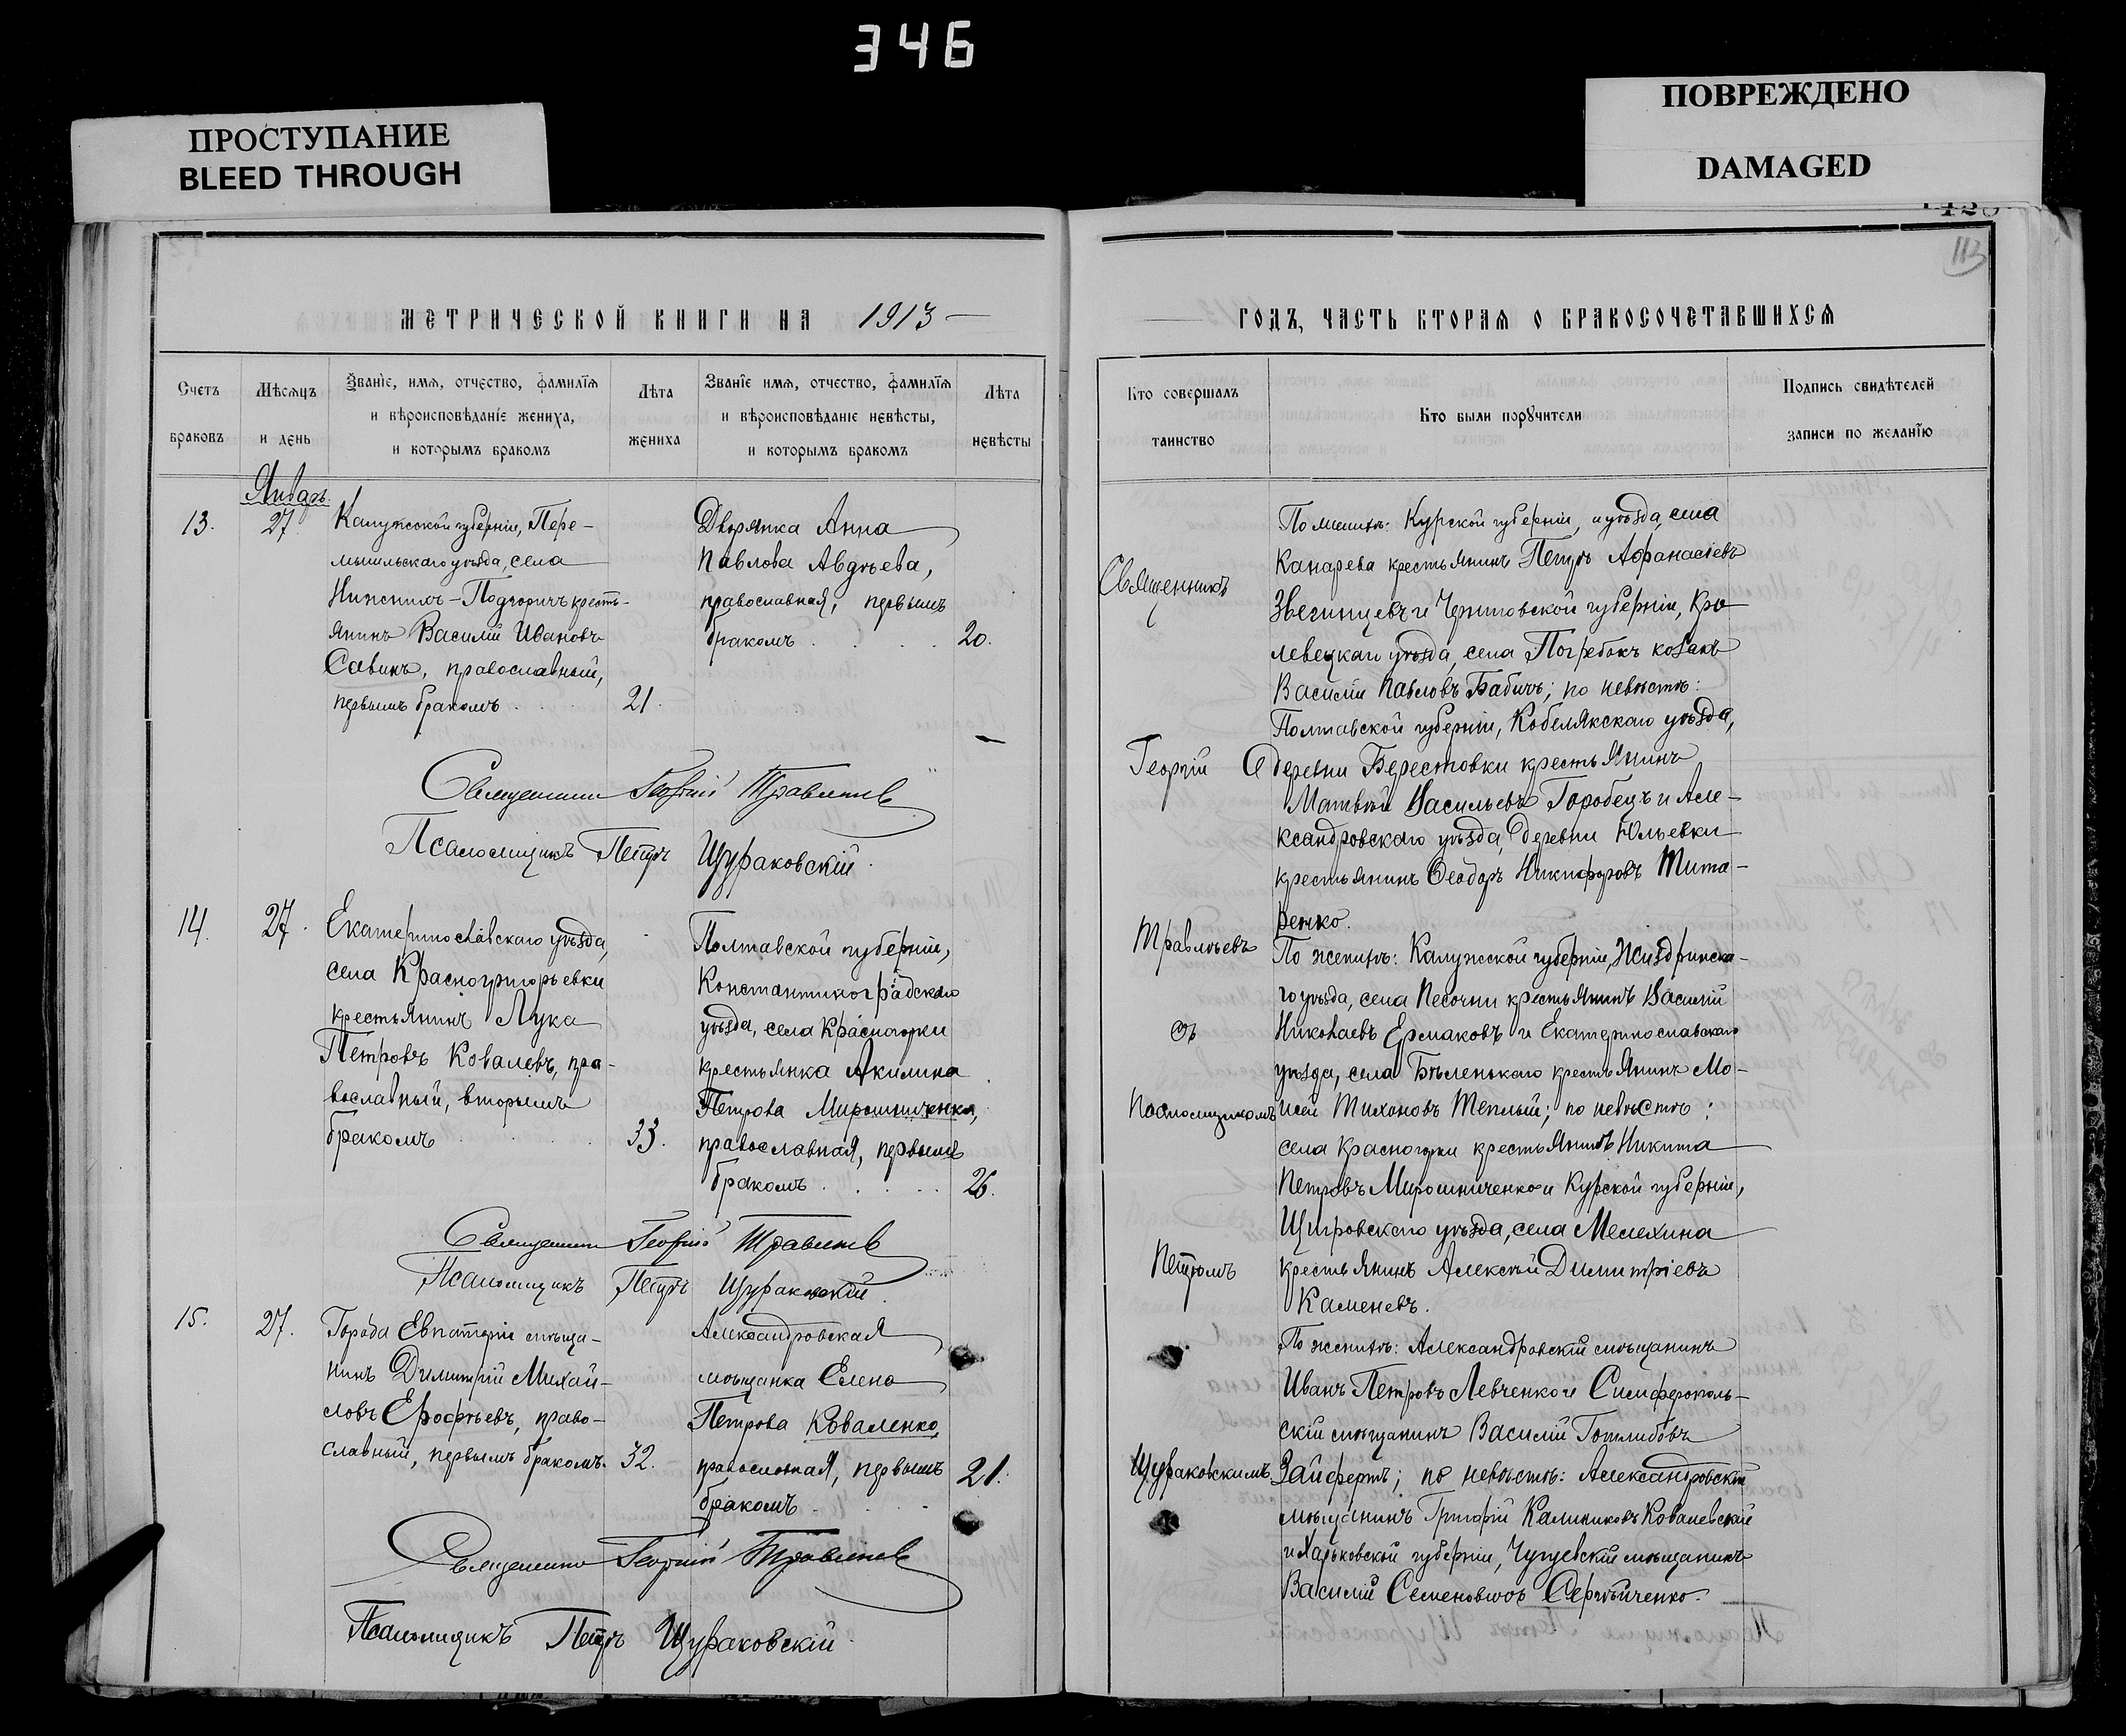 346
ПРОСТУПАНИЕ
BLEED THROUGH
ПОВРЕЖДЕНО
DAMAGED
113
МЕТРИЧЕСКОЙ КНИГИ НА 1913
ГОДЪ, ЧАСТЬ ВТОРАЯ О БРАКОСОЧЕТАВШИХСЯ
Счетъ
браковъ
Мѣсяцъ
и день
Званіе, имя, отчество, фамилія
и вѣроисповѣданіе жениха,
и которымъ бракомъ
Лѣта
жениха
Званіе имя, отчество, фамилія
и вѣроисповѣданіе невѣсты,
и которымъ бракомъ
Лѣта
невѣсты
Кто совершалъ
таинство
Кто были поручители
Подпись свидѣтелей
записи по желанію
Январь
13.
27
Калужской губерніи, Пере-
мышльскаго уѣзда, села
Нижнихъ-Подгоричъ кресть-
янинъ Василій Ивановъ
Савинъ, православный,
первымъ бракомъ
21.
Дворянка Анна
Павлова Авдѣева,
православная, первымъ
бракомъ
20.
Священникъ Георгій Травлѣевъ
Псаломщикъ Петръ Щураковскій.
14.
27.
Екатеринославскаго уѣзда,
села Красногригорьевки
крестьянинъ Лука
Петровъ Ковалевъ, пра-
вославный, вторымъ
бракомъ
33.
Полтавской губерніи,
Константиноградскаго
уѣзда, села Красногорки
крестьянка Акилина
Петрова Мирошниченко,
православная, первымъ
бракомъ
26.
Священникъ Георгій Травлѣевъ
Псаломщикъ Петръ Щураковскій.
15.
27.
Города Евпаторіи мѣща-
нинъ Димитрій Михай-
ловъ Ерофѣевъ, право-
славный, первымъ бракомъ.
32.
Александровская
мѣщанка Елена
Петрова Коваленко,
православная, первымъ
бракомъ
21.
Священникъ Георгій Травлѣевъ
Псаломщикъ Петръ Щураковскій
Священникъ
Георгій
Травлѣевъ
съ
Псаломщикомъ
Петромъ
Щураковскимъ
По женихѣ: Курской губерніи, и уѣзда, села
Канарева крестьянинъ Петръ Афанасіевъ
Звегинцевъ и Черниговской губерніи, Кро-
левецкаго уѣзда, села Погребокъ козакъ
Василій Павловъ Бабичъ; по невѣстѣ:
Полтавской губерніи, Кобелякскаго уѣзда,
деревни Берестовки крестьянинъ
Матвѣй Васильевъ Горобецъ и Але-
ксандровскаго уѣзда, деревни Юльевки
крестьянинъ Ѳеодоръ Никифоровъ Тита-
ренко.
По женихѣ: Калужской губерніи, Жиздринска-
го уѣзда, села Песочни крестьянинъ Василій
Николаевъ Ермаковъ и Екатеринославскаго
уѣзда, села Бѣленькаго крестьянинъ Мо-
исей Тихоновъ Теплый; по невѣстѣ:
села Красногорки крестьянинъ Никита
Петровъ Мирошниченко и Курской губерніи,
Щигровскаго уѣзда, села Мелехина
крестьянинъ Алексѣй Димитріевъ
Каменевъ.
По женихѣ: Александровскій мѣщанинъ
Иванъ Петровъ Левченко и Симферополь-
скій мѣщанинъ Василій Готлибовъ
Зайфертъ; по невѣстѣ: Александровскій
мѣщанинъ Григорій Калиниковъ Ковалевскій
и Харьковской губерніи, Чугуевскій мѣщанинъ
Василій Семеновичъ Сергѣйченко.